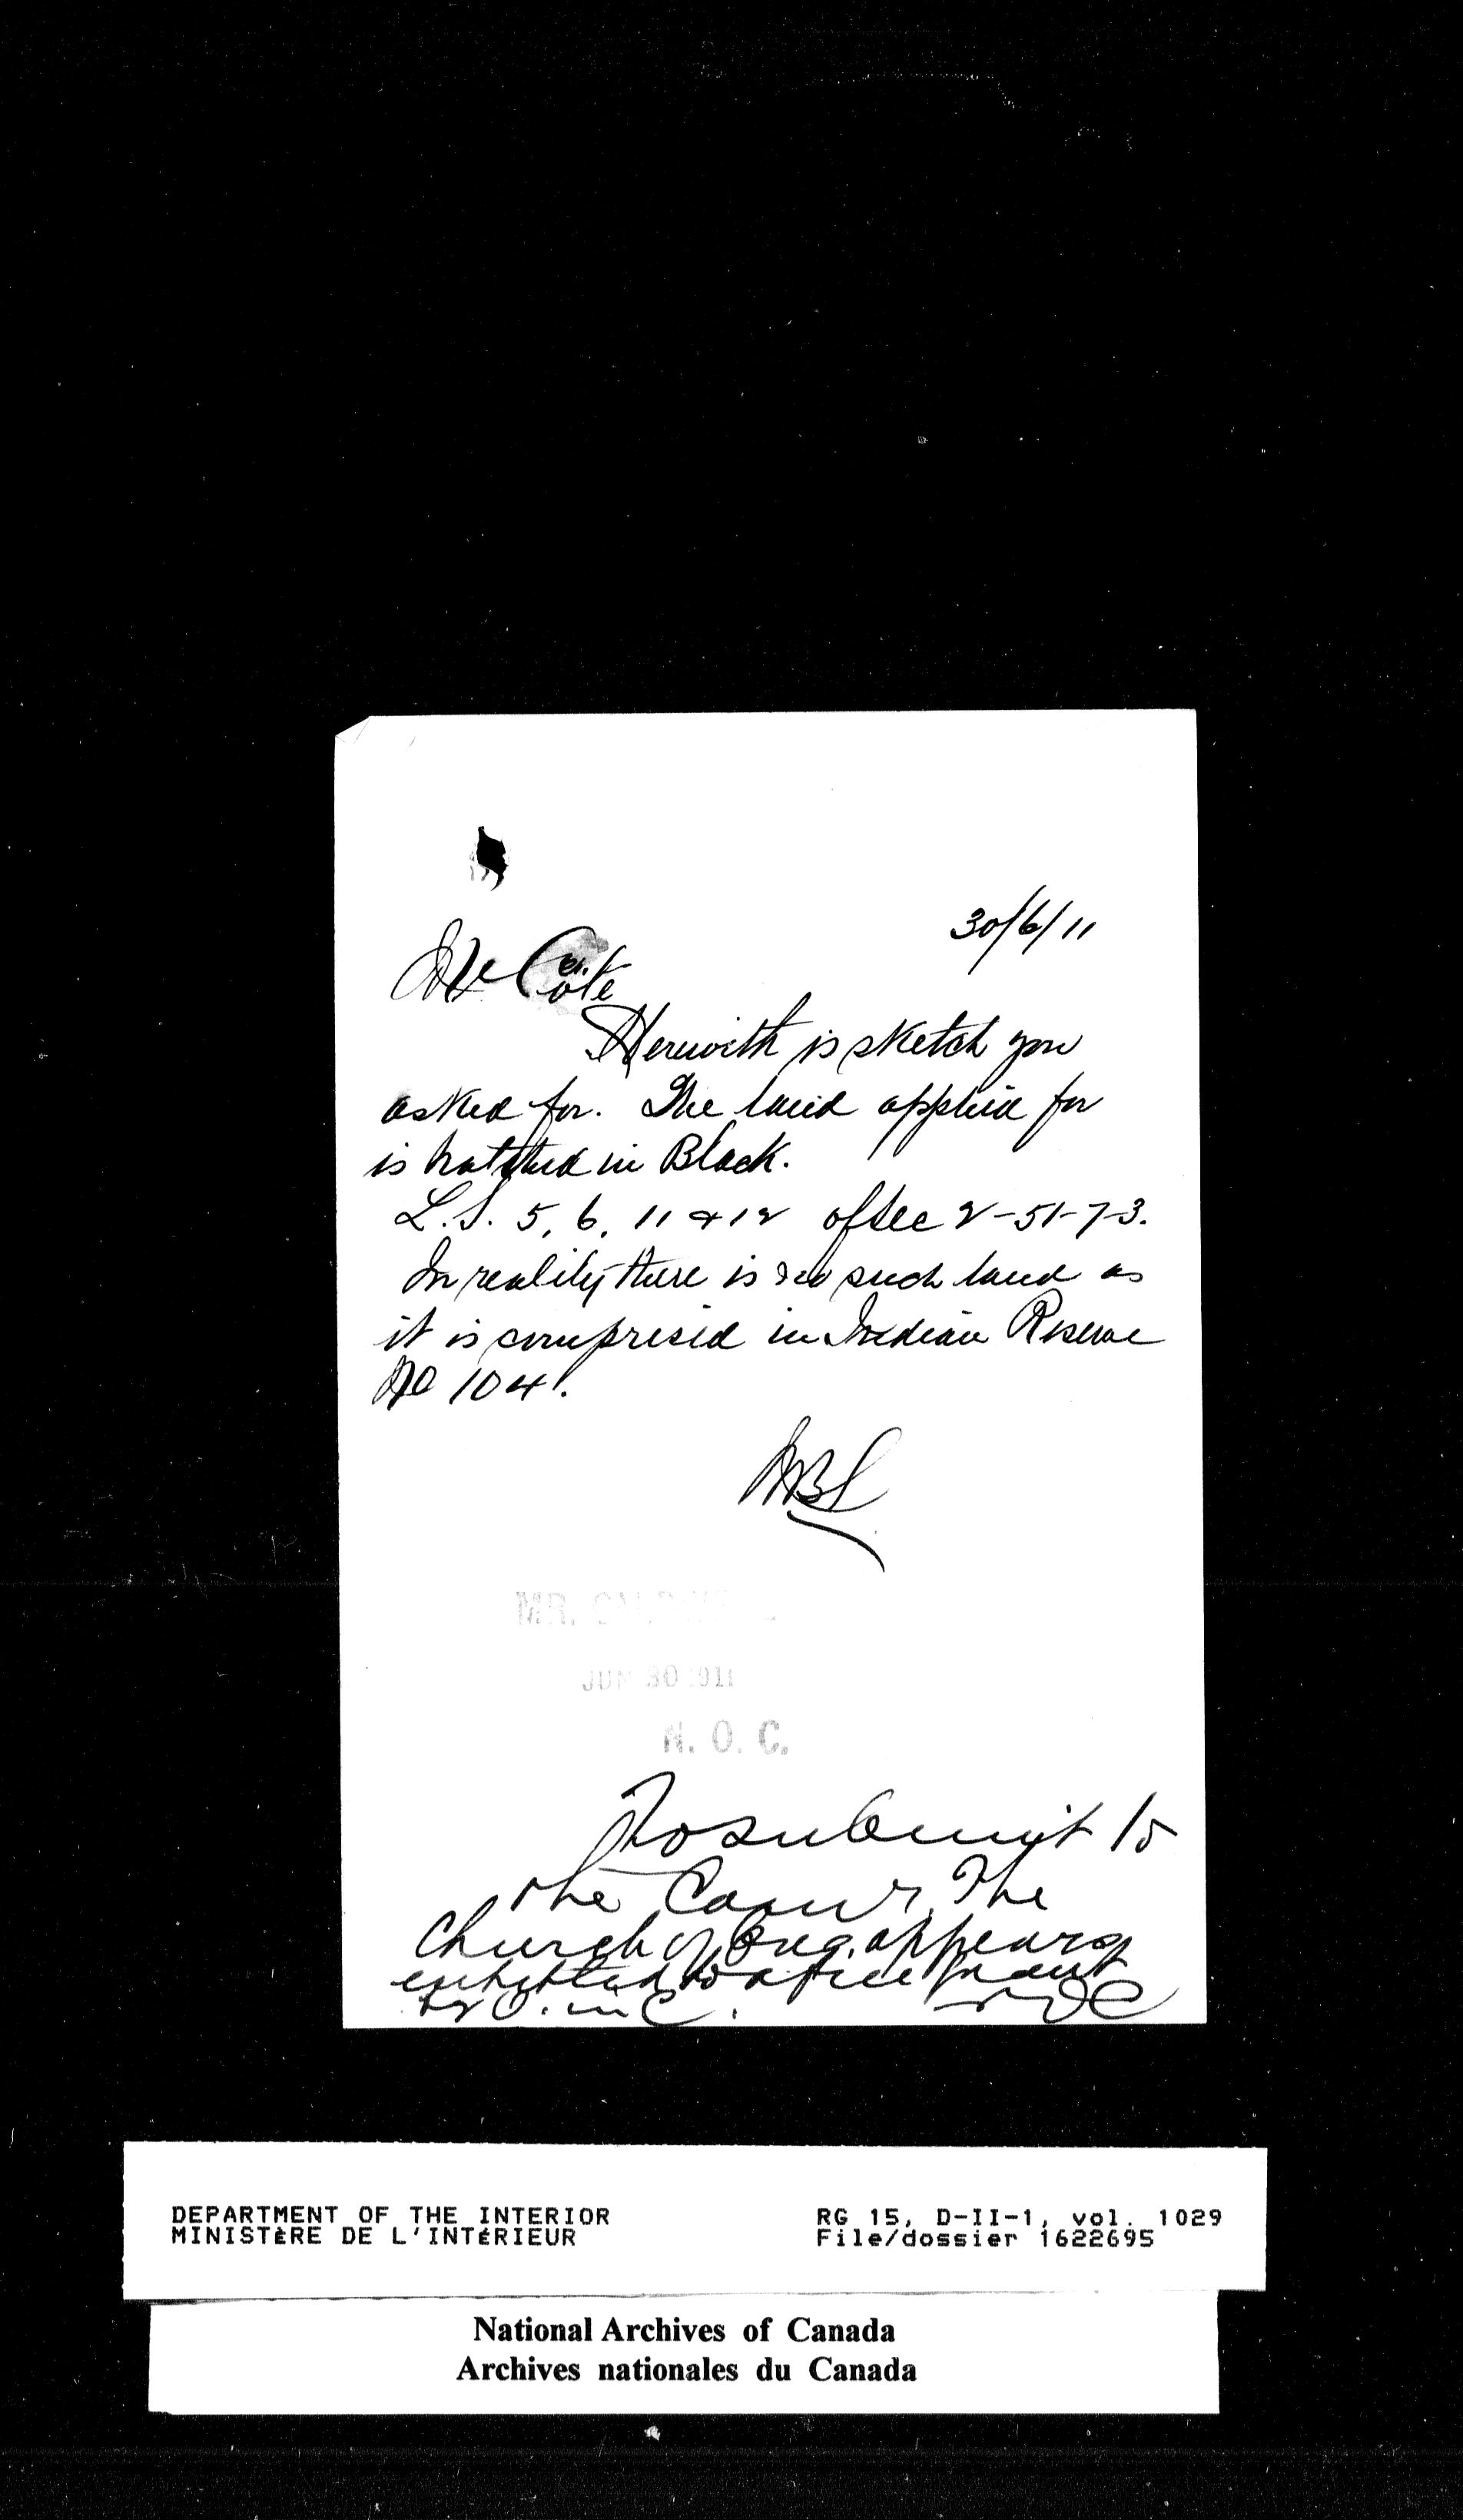 30/6/11
Mr Côté
Herewith is sketch you
asked for. The land applied for
is hatched in Black.
L.S. 5, 6, 11 & 12 of Sec 2-51-7-3.
In reality there is no such land as
it is comprised in Indian Reserve
No 104.
MR.
JUN 30 1911
N. O. C.
To submit to
the Comr. The
Church of Eng. appears
entitled to a free grant
by O. in C.
DEPARTMENT OF THE INTERIOR
MINISTÈRE DE L'INTÉRIEUR
RG 15, D-II-1, vol. 1029
File/dossier 1622695
National Archives of Canada
Archives nationales du Canada